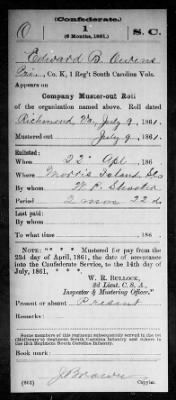 (Confederate.)
O 1 S. C.
(6 Months, 1861.)
Edward B. Owens
Co. K, 1 Reg't South Carolina Vols.
Appears on
Company Muster-out Roll
of the organization named above. Roll dated
Richmond, Va, July 9, 1861.
Mustered out July 9, 1861.
Enlisted:
When 22 Apl 186
Where Morris Island, So
By whom W. P. Shooter
Period 2 mos 22 ds
Last paid:
By whom
To what time 186 .
NOTE.— * * * * Mustered for pay from the
23d day of April, 1861, the date of acceptance
into the Confederate Service, to the 14th day of
July, 1861. * * * *
W. R. BULLOCK,
2d Lieut. C. S. A.,
Inspector & Mustering Officer."
Present or absent Present
Remarks:
Book mark:
(863) Copyist.